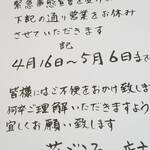 緊急事態宣言を受け
下記の通り営業をお休み
させていただきます
記
4月16日〜5月6日まで
皆様にはご不便をおかけ致しま
何卒ご理解いただきますよう
宜しくお願い致します